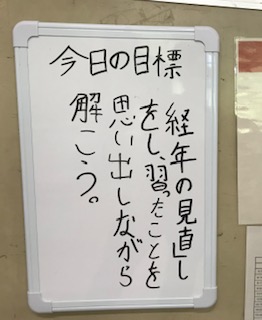 今日の目標
経年の見直し
をし、習ったことを
思い出しながら
解こう。